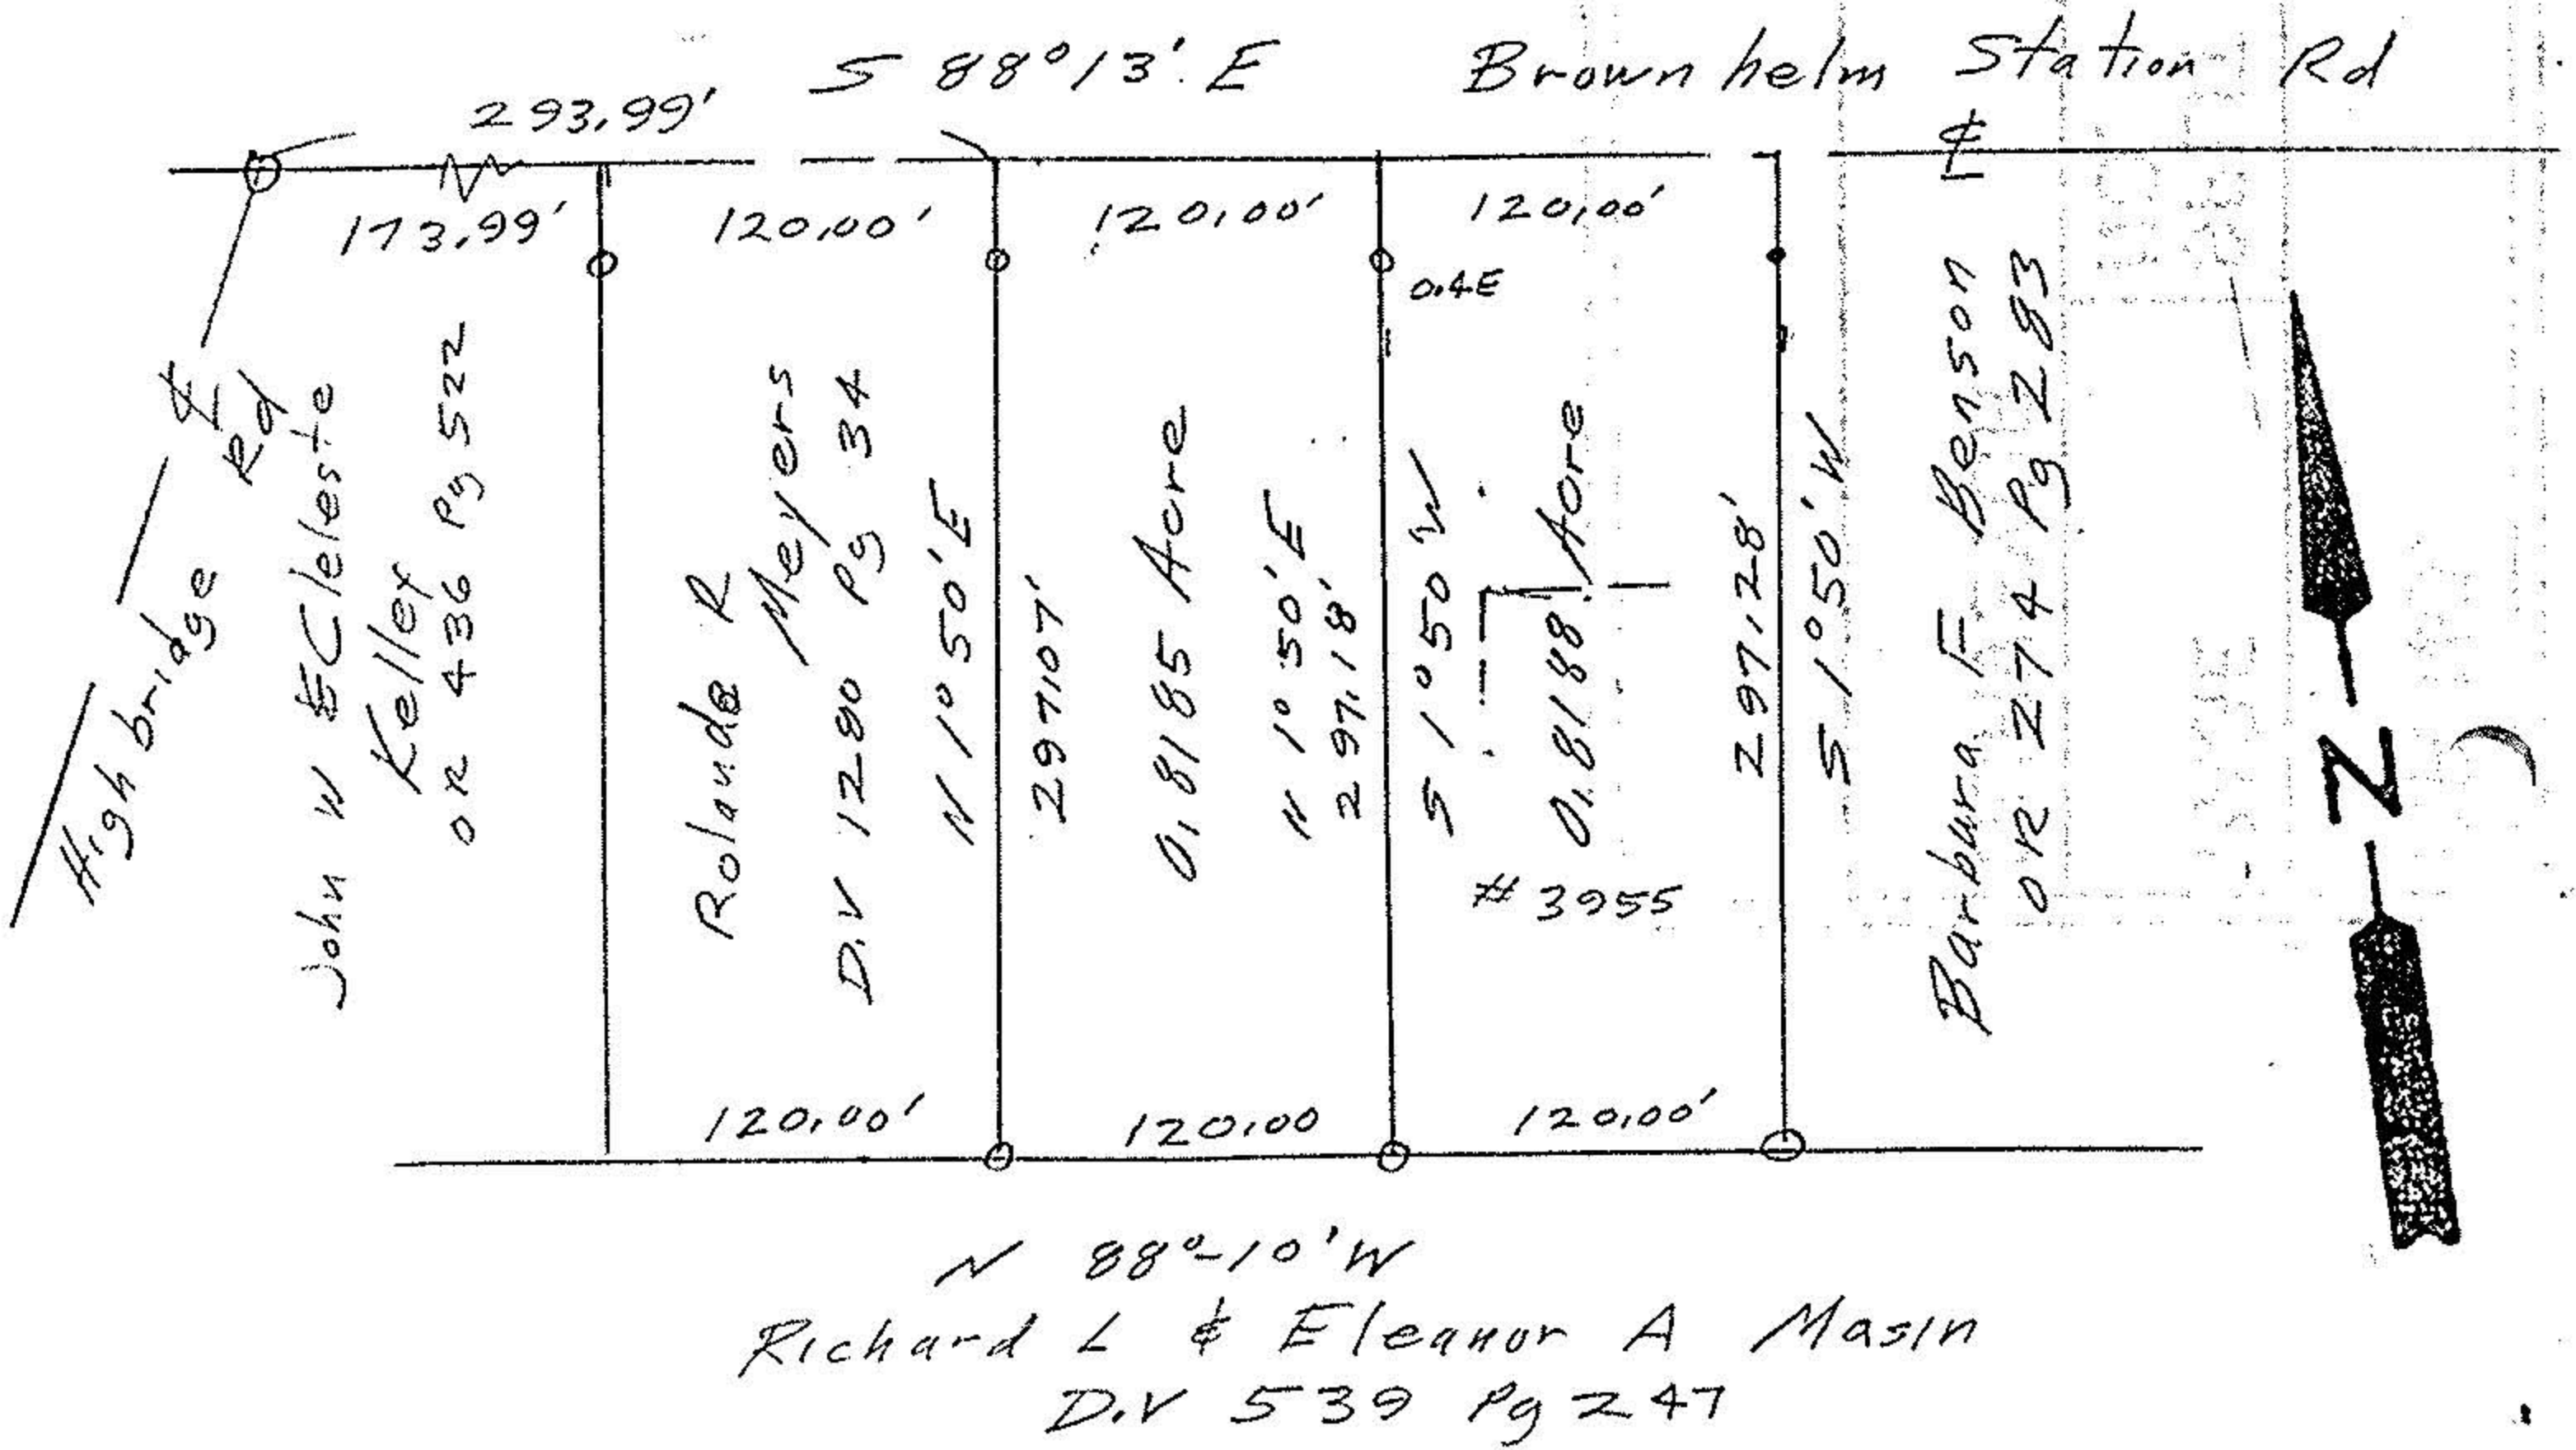 S 88°13' E Brownhelm Station Rd
293.99'
℄
173.99' 120.00' 120.00' 120.00'
0.4E
Highbridge Rd
℄
John W & Celeste
Kelley
OR 436 Pg 522
Rolande R
Meyers
D.V 1280 Pg 34
N 1° 50' E
297.07'
0.8185 Acre
N 1° 50' E
297.18'
S 1° 50' W
0.8188 Acre
# 3955
297.28'
S 1° 50' W
Barbara F Benson
OR 274 Pg 283
N
120.00' 120.00 120.00'
N 88°-10' W
Richard L & Eleanor A Masin
D.V 539 Pg 247